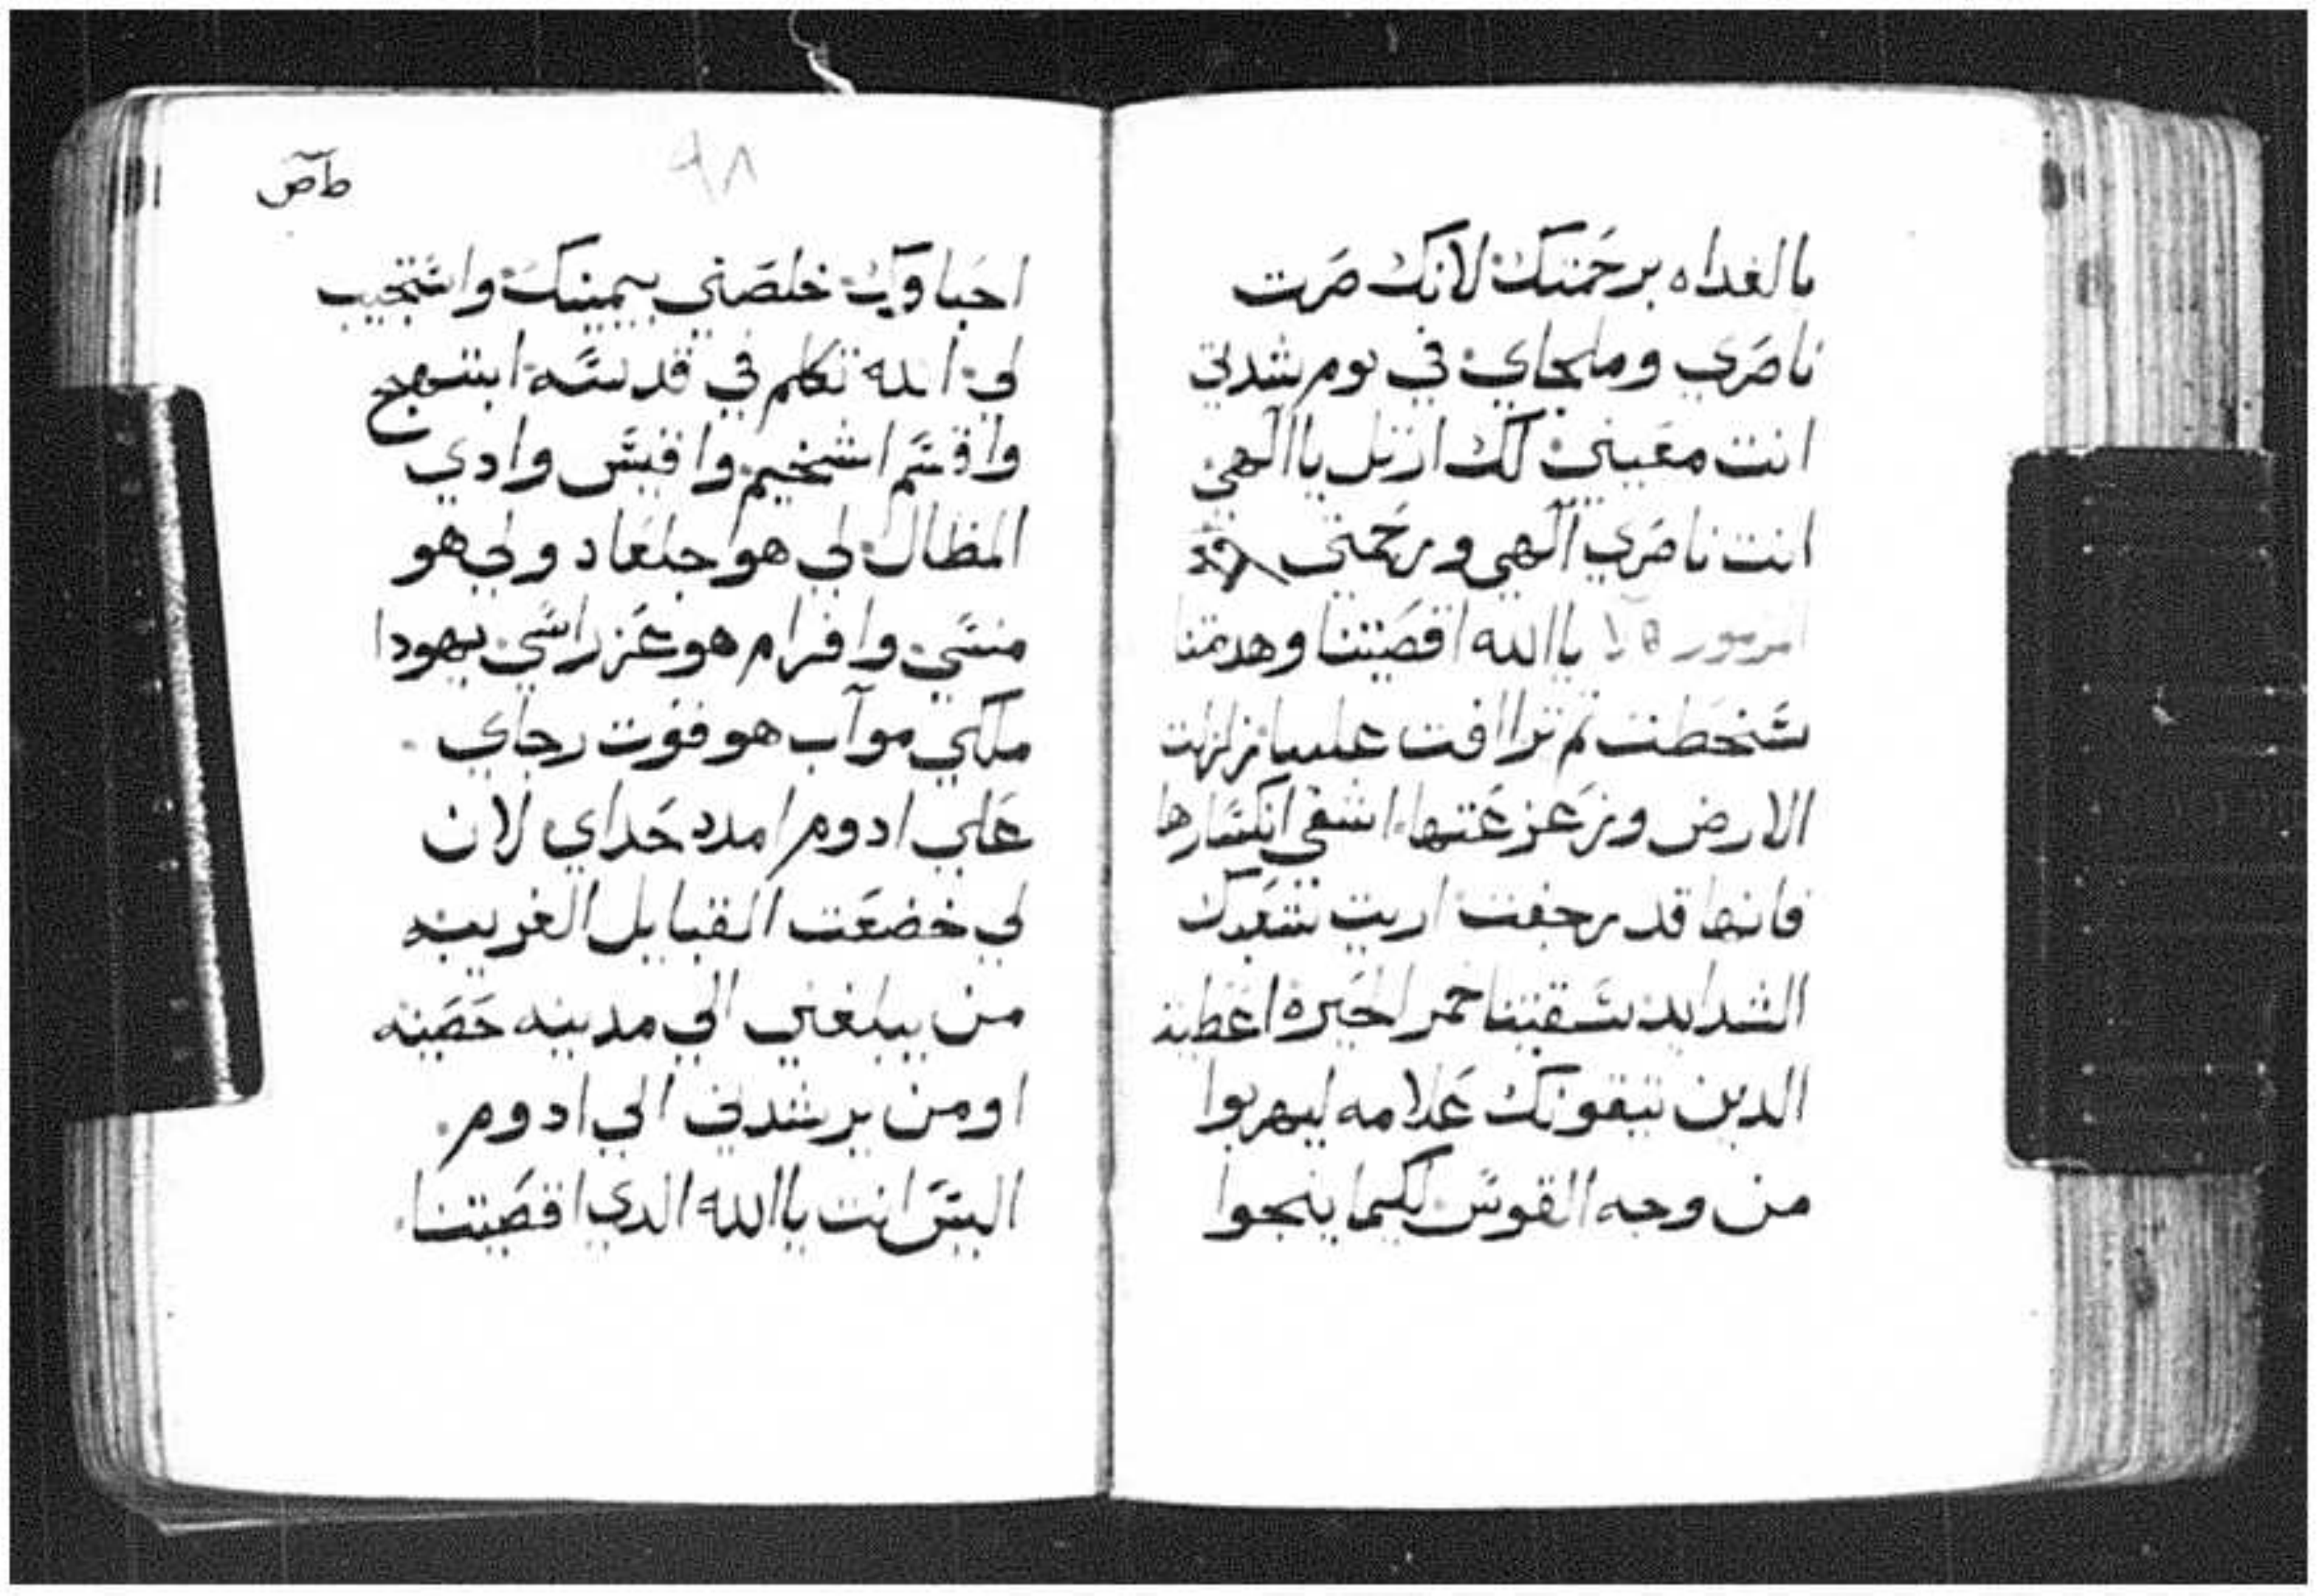 بالغداه برحمتك لانك صرت
ناصري وملجاي في يوم شدتي
انت معيني لك ارتل ياالهي
انت ناصري آلهي ورحمتي
امزمور ياالله اقصيتنا وهدمتنا
سخطت تم تراافت علينا زلزلت
الارض وزعزعتها اشفي انكسارها
فانها قد رجفت اريت شعبك
الشدايد سقيتنا خمر الحيره اعطيت
الدين يتقونك علامه ليهربوا
من وجه القوس لكيما ينجوا
٩٨
طص
احباوك خلصني بيمينك واستجيب
لي الله تكلم في قدسه ابتهج
واقسم اشخيم واقيس وادي
المظال لي هو جلعاد ولي هو
منسي وافرام هو عز راسي يهودا
ملكي موآب هو فوت رجاي
علي ادوم امدد حداي لان
لي خضعت القبايل الغريبه
من يبلغني الي مدينه حصينه
اومن يرشدني الي ادوم
اليس انت ياالله الدي اقصيتنا